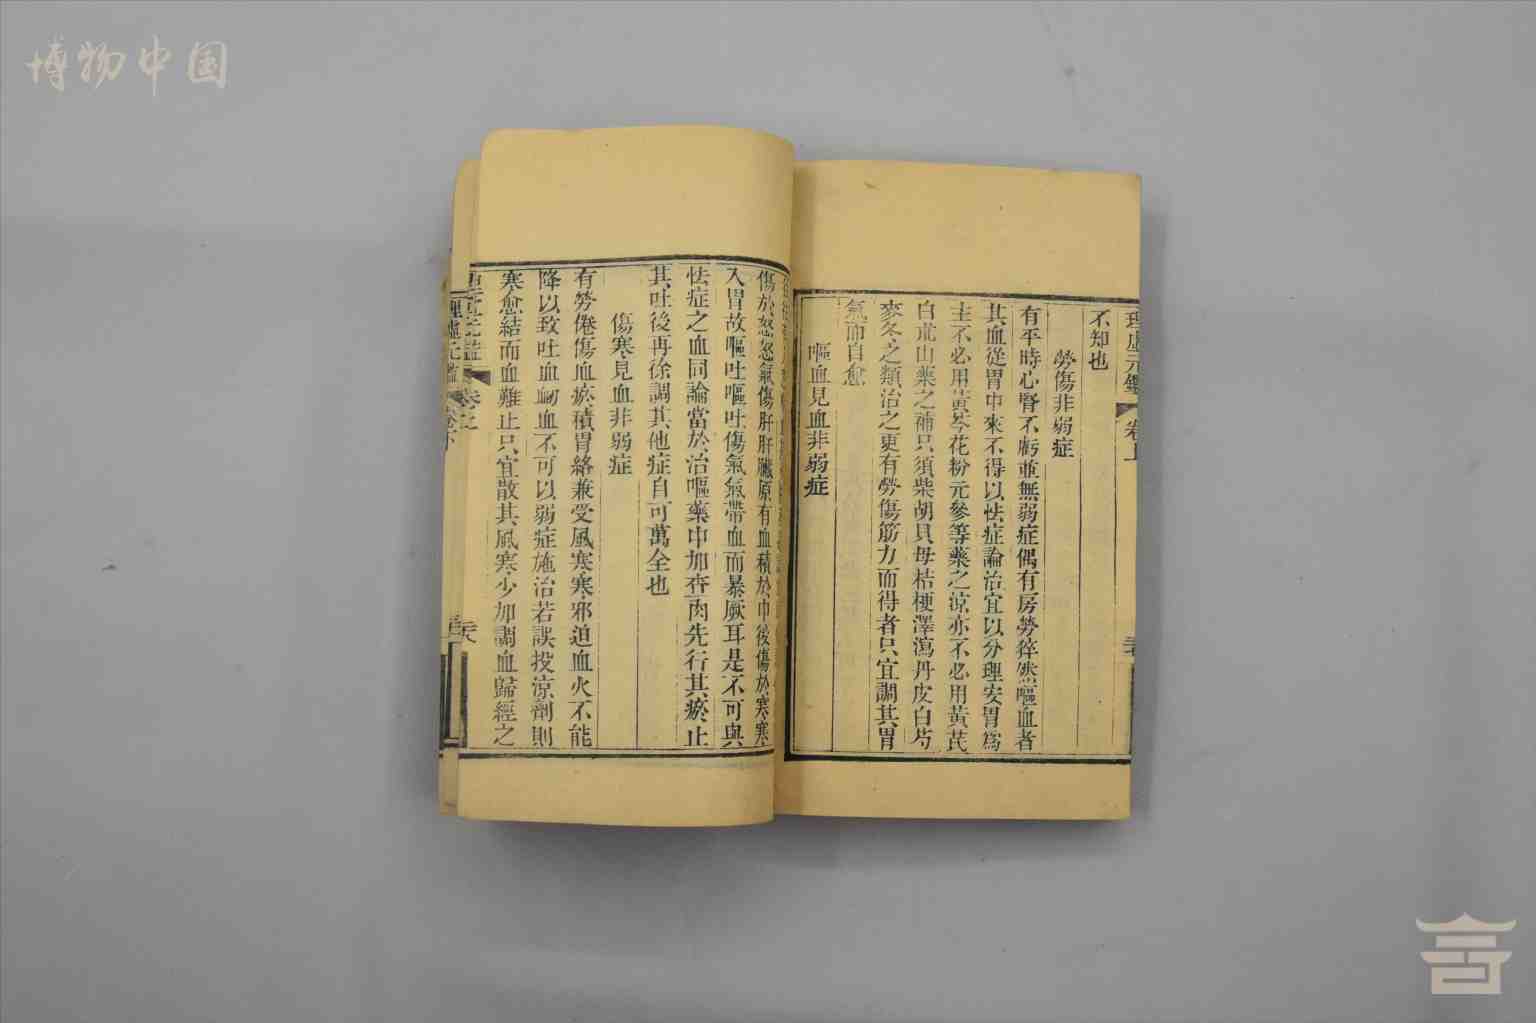 博物中国
理虛元鑑
卷上
不知也
勞傷非弱症
有平時心腎不虧並無弱症偶有房勞猝然嘔血者
其血從胃中來不得以怯症論治宜以分理安胃為
主不必用黃芩花粉元參等藥之涼亦不必用黃芪
白朮山藥之補只須柴胡貝母桔梗澤瀉丹皮白芍
麥冬之類治之更有勞傷筋力而得者只宜調其胃
氣而自愈
嘔血見血非弱症
傷於怒怒氣傷肝肝臟原有血積於中後傷於寒寒
入胃故嘔吐嘔吐傷氣氣帶血而暴厥耳是不可與
怯症之血同論當於治嘔藥中加查肉先行其瘀止
其吐後再徐調其他症自可萬全也
傷寒見血非弱症
有勞倦傷血瘀積胃絡兼受風寒寒邪迫血火不能
降以致吐血衂血不可以弱症施治若誤投涼劑則
寒愈結而血難止只宜散其風寒少加調血歸經之
理虛元鑑
卷下